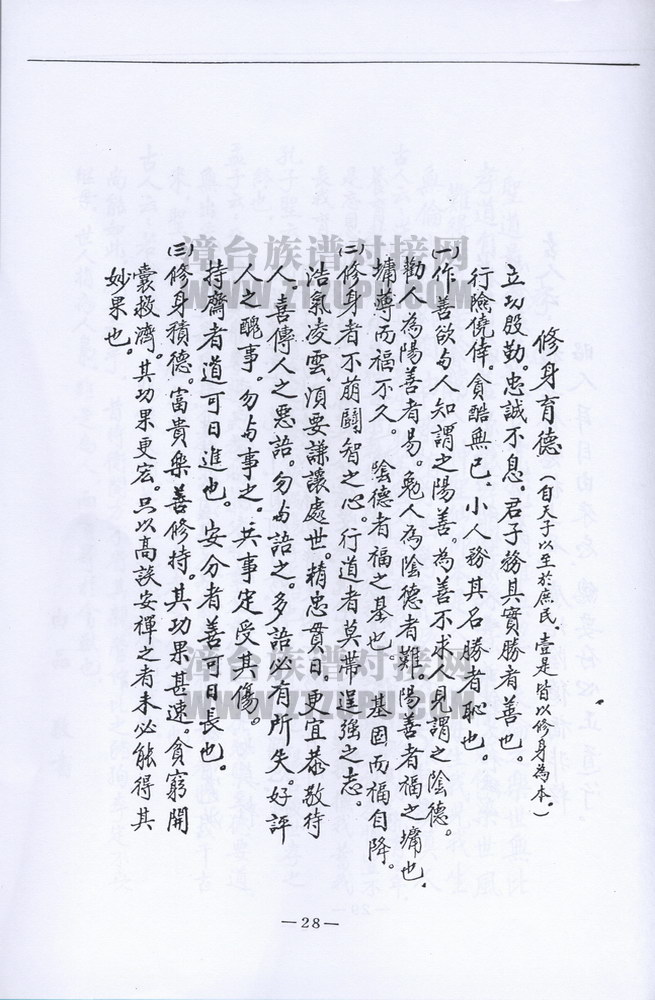 修身育德（自天子以至於庶民，壹是皆以修身為本。）
立功殷勤。忠誠不息。君子務其實勝者善也。
行險僥倖。貪酷無已。小人務其名勝者恥也。
(一)作善欲与人知謂之陽善。為善不求人見謂之陰德。
勸人為陽善者易。勉人為陰德者難。陽善者福之墉也，
墉薄而福不久。陰德者福之基也，基固而福自降。
(二)修身者不萌鬪智之心。行道者莫滯逞强之志。
浩氣凌雲，須要謙讓處世。精忠貫日。更宜恭敬待
人，喜傳人之惡語。勿与語之。多語必有所失。好評
人之醜事。勿与事之。共事定受其傷。
持齋者道可日進也。安分者善可日長也。
(三)修身積德。富貴樂善修持。其功果甚速。貧窮開
囊救濟。其功果更宏。只以高談安禪之者未必能得其
妙果也。
—28—
漳台族谱对接网
WWW.ZTZUPU.COM
漳台族谱对接网
WWW.ZTZUPU.COM